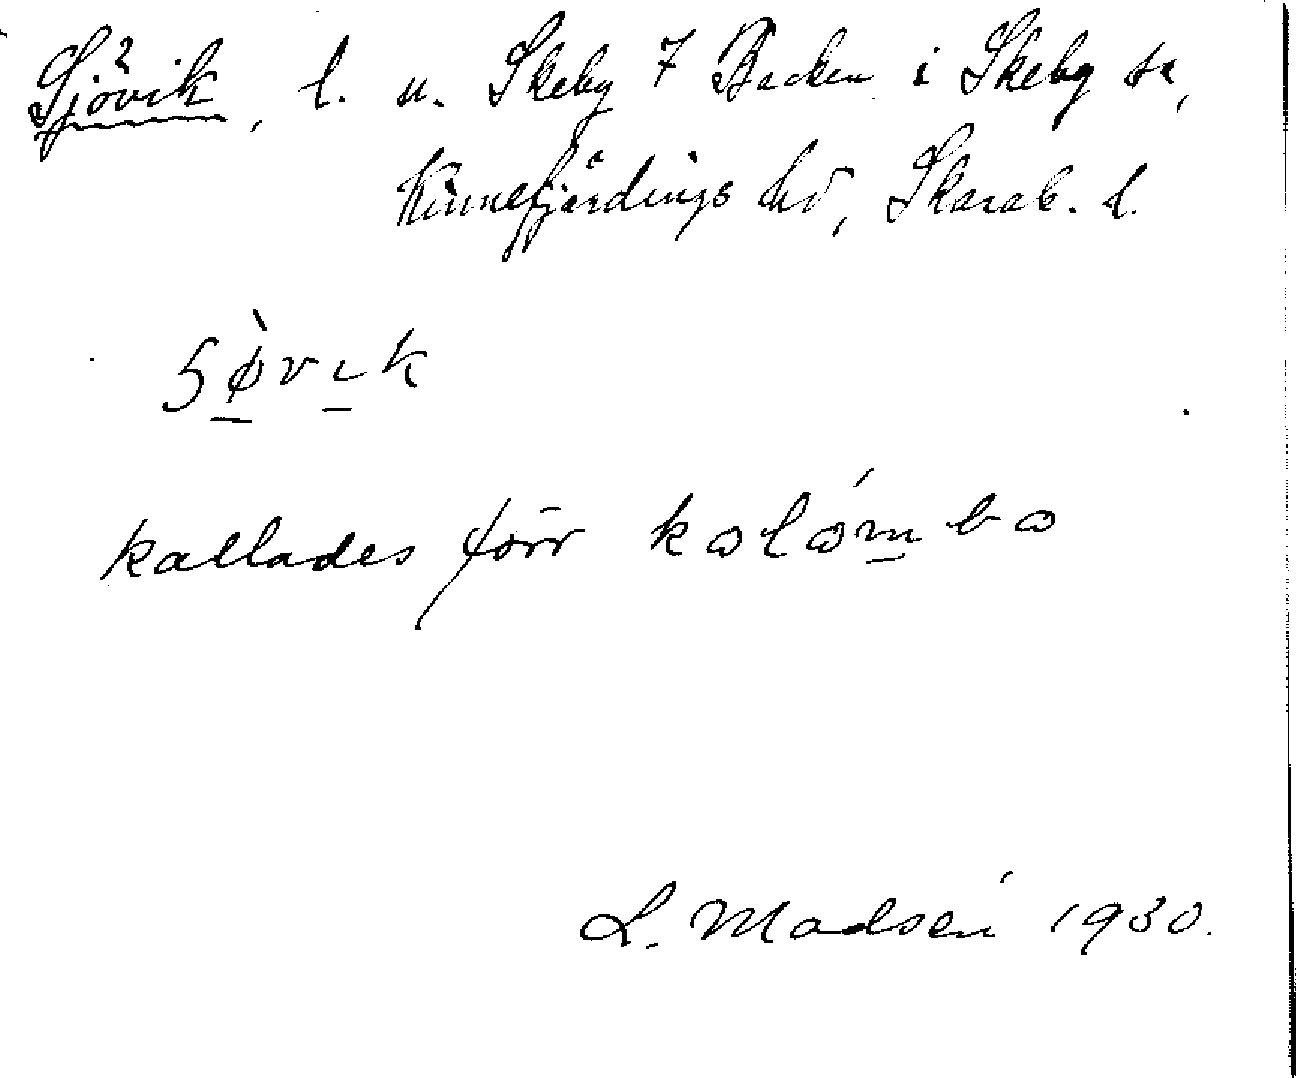 Sjövik, l. u. Skeby 7 Backen i Skeby sn,
Kinnefjärdings hd, Skarab. l.
sø̀vık
kallades förr kolómbo
L. Madsén 1930.